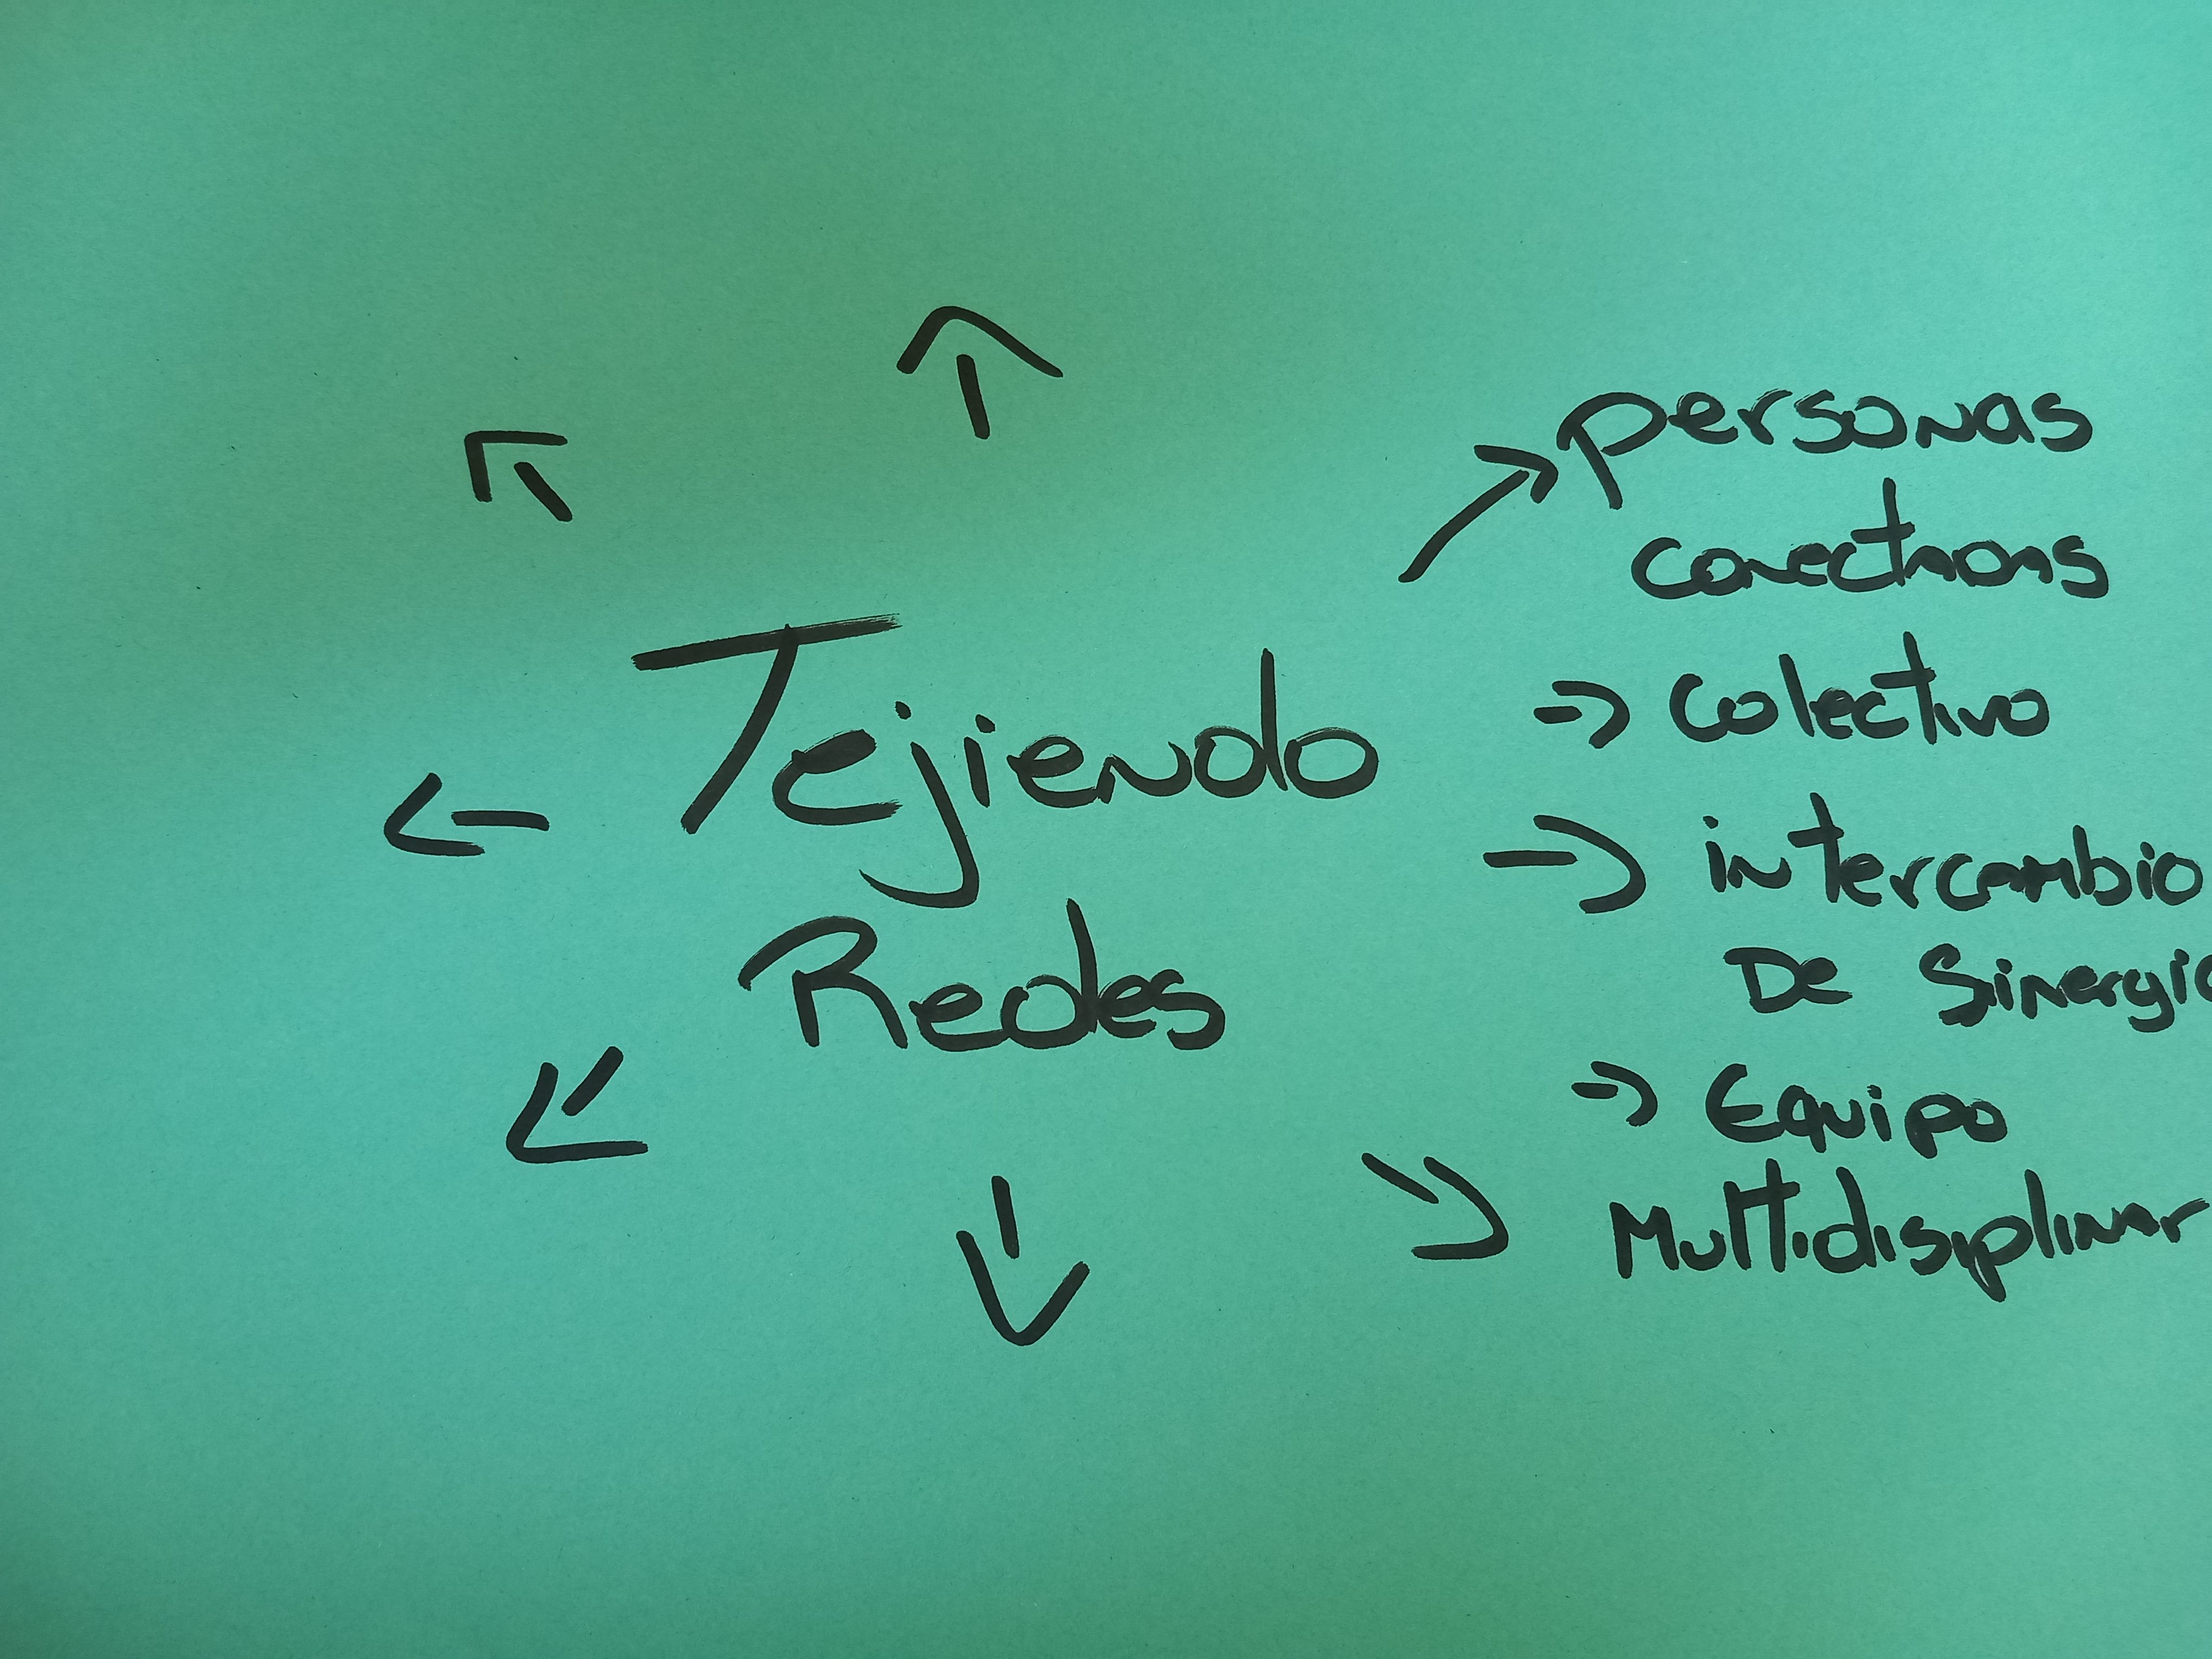 Tejiendo
Redes
personas
conectadas
→ colectivo
→ intercambio
De Sinergia
→ Equipo
Multidisiplinar